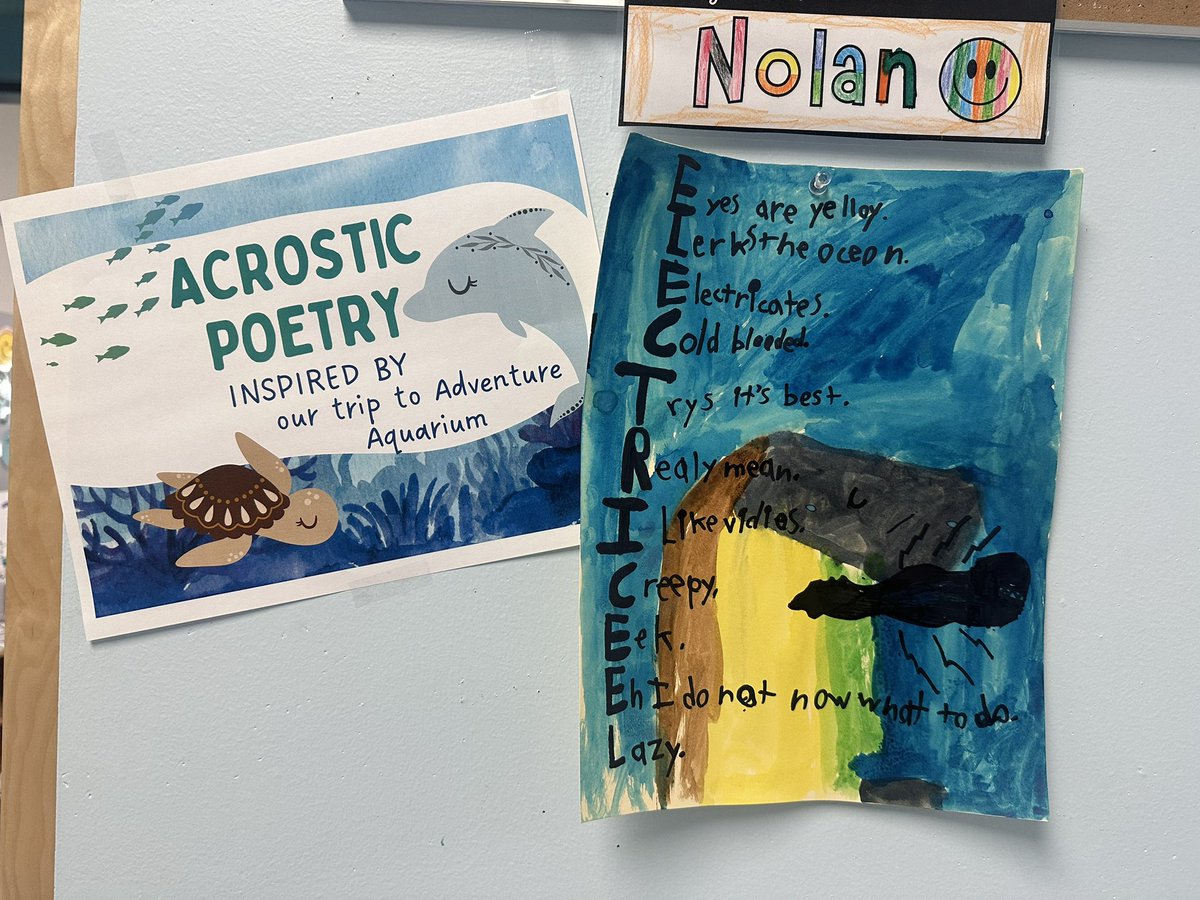 Nolan
ACROSTIC
POETRY
INSPIRED BY
our trip to Adventure
Aquarium
Eyes are yelloy.
Lerks the oceon.
Electricates.
Cold blooded.
Trys it's best.
Realy mean.
I Like vidios.
Creepy.
Eek.
Eh I do not now what to do.
Lazy.